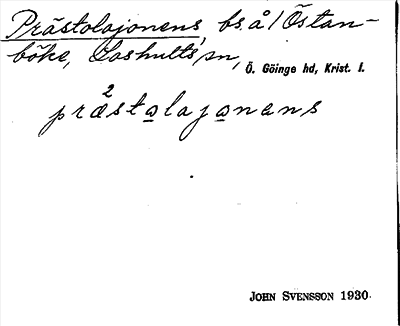 Prästolajonens, bs å / Östan-
böke, Loshults sn, Ö. Göinge hd, Krist. l.
præ²sto̲lajo̲nens
JOHN SVENSSON 1930.